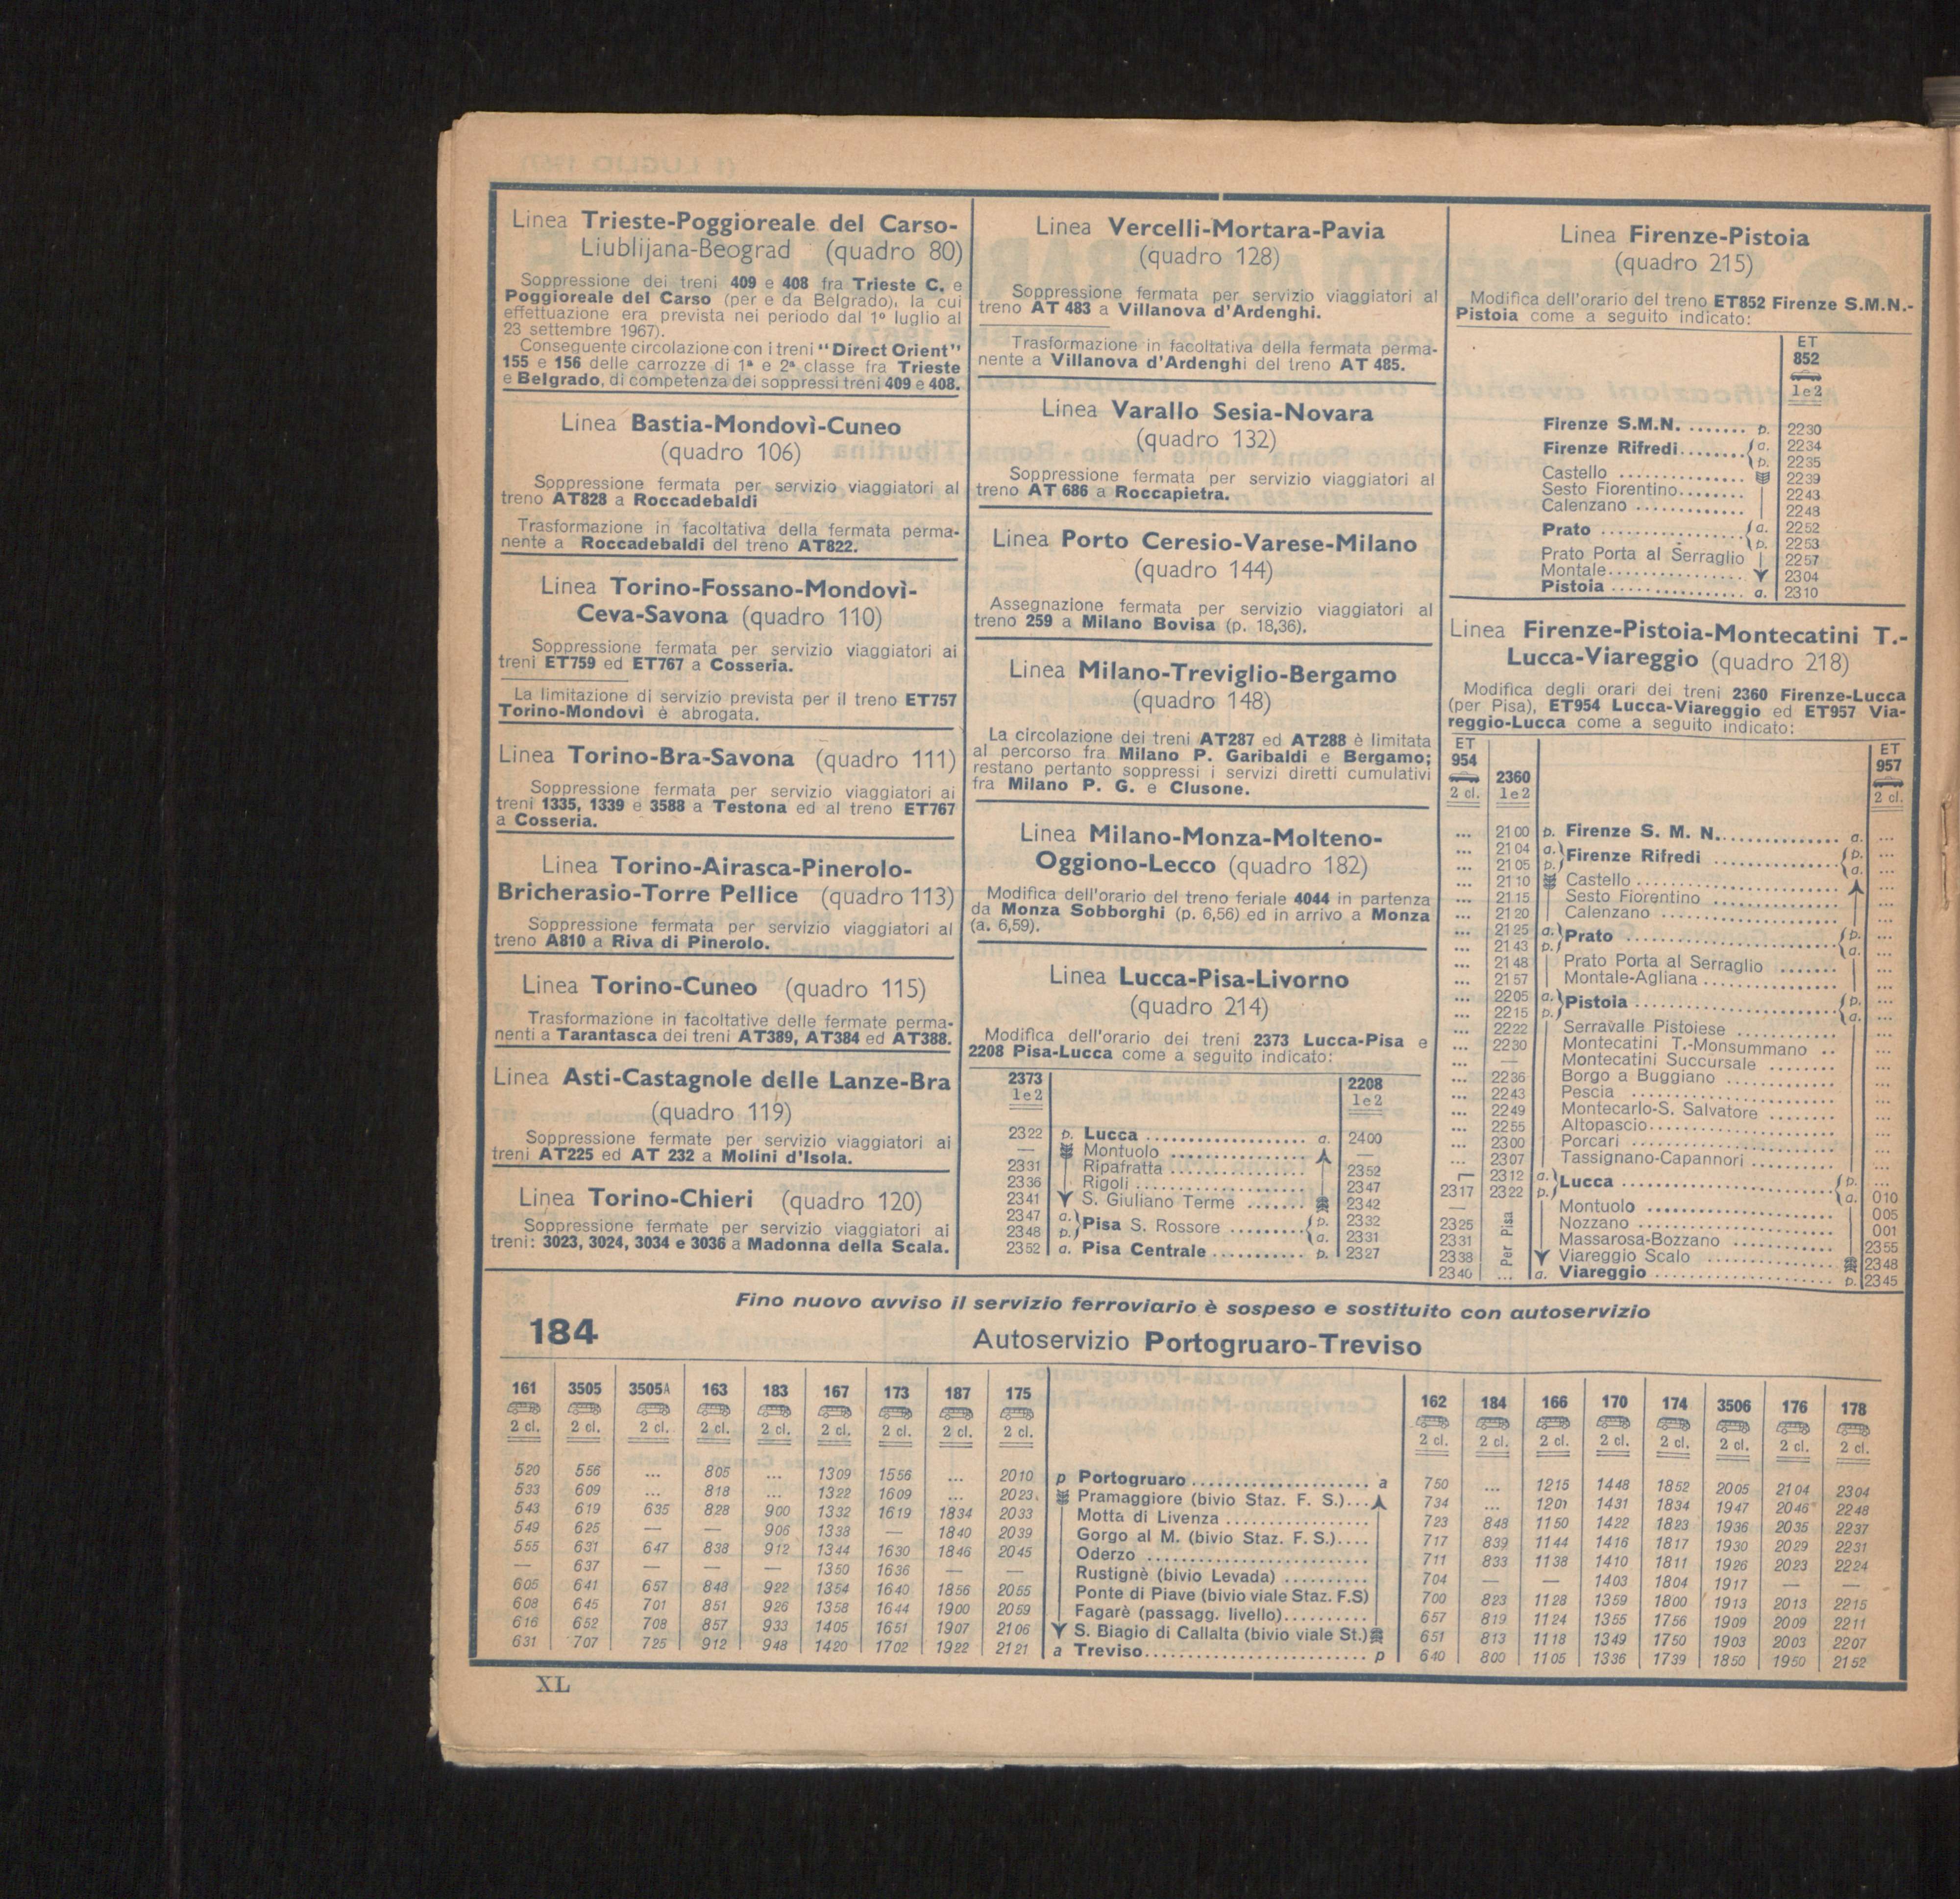 Linea Trieste-Poggioreale del Carso-
Liublijana-Beograd (quadro 80)
Soppressione dei treni 409 e 408 fra Trieste C. e
Poggioreale del Carso (per e da Belgrado), la cui
effettuazione era prevista nei periodo dal 1º luglio al
23 settembre 1967).
Conseguente circolazione con i treni "Direct Orient"
155 e 156 delle carrozze di 1ª e 2ª classe fra Trieste
e Belgrado, di competenza dei soppressi treni 409 e 408.
Linea Bastia-Mondovì-Cuneo
(quadro 106)
Soppressione fermata per servizio viaggiatori al
treno AT828 a Roccadebaldi
Trasformazione in facoltativa della fermata perma-
nente a Roccadebaldi del treno AT822.
Linea Torino-Fossano-Mondovì-
Ceva-Savona (quadro 110)
Soppressione fermata per servizio viaggiatori ai
treni ET759 ed ET767 a Cosseria.
La limitazione di servizio prevista per il treno ET757
Torino-Mondovì è abrogata.
Linea Torino-Bra-Savona (quadro 111)
Soppressione fermata per servizio viaggiatori ai
treni 1335, 1339 e 3588 a Testona ed al treno ET767
a Cosseria.
Linea Torino-Airasca-Pinerolo-
Bricherasio-Torre Pellice (quadro 113)
Soppressione fermata per servizio viaggiatori al
treno A810 a Riva di Pinerolo.
Linea Torino-Cuneo (quadro 115)
Trasformazione in facoltative delle fermate perma-
nenti a Tarantasca dei treni AT389, AT384 ed AT388.
Linea Asti-Castagnole delle Lanze-Bra
(quadro 119)
Soppressione fermate per servizio viaggiatori ai
treni AT225 ed AT 232 a Molini d'Isola.
Linea Torino-Chieri (quadro 120)
Soppressione fermate per servizio viaggiatori ai
treni: 3023, 3024, 3034 e 3036 a Madonna della Scala.
Linea Vercelli-Mortara-Pavia
(quadro 128)
Soppressione fermata per servizio viaggiatori al
treno AT 483 a Villanova d'Ardenghi.
Trasformazione in facoltativa della fermata perma-
nente a Villanova d'Ardenghi del treno AT 485.
Linea Varallo Sesia-Novara
(quadro 132)
Soppressione fermata per servizio viaggiatori al
treno AT 686 a Roccapietra.
Linea Porto Ceresio-Varese-Milano
(quadro 144)
Assegnazione fermata per servizio viaggiatori al
treno 259 a Milano Bovisa (p. 18,36).
Linea Milano-Treviglio-Bergamo
(quadro 148)
La circolazione dei treni AT287 ed AT288 è limitata
al percorso fra Milano P. Garibaldi e Bergamo;
restano pertanto soppressi i servizi diretti cumulativi
fra Milano P. G. e Clusone.
Linea Milano-Monza-Molteno-
Oggiono-Lecco (quadro 182)
Modifica dell'orario del treno feriale 4044 in partenza
da Monza Sobborghi (p. 6,56) ed in arrivo a Monza
(a. 6,59).
Linea Lucca-Pisa-Livorno
(quadro 214)
Modifica dell'orario dei treni 2373 Lucca-Pisa e
2208 Pisa-Lucca come a seguito indicato:
2373 2208
1e2 1e2
2322 p. Lucca .................. a. 2400
— Montuolo .................. —
2331 Ripafratta .................. 2352
2336 Rigoli .................. 2347
2341 S. Giuliano Terme ....... 2342
2347 a. Pisa S. Rossore ......... p. 2332
2348 p. a. 2331
2352 a. Pisa Centrale ........... p. 2327
Linea Firenze-Pistoia
(quadro 215)
Modifica dell'orario del treno ET852 Firenze S.M.N.-
Pistoia come a seguito indicato:
ET
852
1e2
Firenze S.M.N. ....... p. 2230
Firenze Rifredi........ a. 2234
p. 2235
Castello ............... 2239
Sesto Fiorentino........ 2243
Calenzano ............. 2248
Prato ................. a. 2252
p. 2253
Prato Porta al Serraglio 2257
Montale................ 2304
Pistoia ................ a. 2310
Linea Firenze-Pistoia-Montecatini T.-
Lucca-Viareggio (quadro 218)
Modifica degli orari dei treni 2360 Firenze-Lucca
(per Pisa), ET954 Lucca-Viareggio ed ET957 Via-
reggio-Lucca come a seguito indicato:
ET ET
954 2360 957
2 cl. 1e2 2 cl.
... 2100 p. Firenze S. M. N.............. a. ...
... 2104 a. Firenze Rifredi ............. p. ...
... 2105 p. a. ...
... 2110 Castello ...................... ...
... 2115 Sesto Fiorentino .............. ...
... 2120 Calenzano .................... ...
... 2125 a. Prato ...................... p. ...
... 2143 p. a. ...
... 2148 Prato Porta al Serraglio ....... ...
... 2157 Montale-Agliana ............... ...
... 2205 a. Pistoia ..................... p. ...
... 2215 p. a. ...
... 2222 Serravalle Pistoiese ........... ...
... 2230 Montecatini T.-Monsummano .. ...
... — Montecatini Succursale ........ ...
... 2236 Borgo a Buggiano ............ ...
... 2243 Pescia ....................... ...
... 2249 Montecarlo-S. Salvatore ........ ...
... 2255 Altopascio.................... ...
... 2300 Porcari ...................... ...
... 2307 Tassignano-Capannori .......... ...
2312 a. Lucca ....................... p. ...
2317 2322 p. a. 010
— Montuolo ...................... 005
2325 Nozzano ...................... 001
2331 Massarosa-Bozzano ............ 2355
2338 Viareggio Scalo ............... 2348
2340 ... a. Viareggio .................. p. 2345
Per Pisa
Fino nuovo avviso il servizio ferroviario è sospeso e sostituito con autoservizio
184 Autoservizio Portogruaro-Treviso
161 3505 3505A 163 183 167 173 187 175 162 184 166 170 174 3506 176 178
2 cl. 2 cl. 2 cl. 2 cl. 2 cl. 2 cl. 2 cl. 2 cl. 2 cl. 2 cl. 2 cl. 2 cl. 2 cl. 2 cl. 2 cl. 2 cl. 2 cl.
520 556 ... 805 ... 1309 1556 ... 2010 p Portogruaro .................... a 750 ... 1215 1448 1852 2005 2104 2304
533 609 ... 818 ... 1322 1609 ... 2023 Pramaggiore (bivio Staz. F. S.)... 734 ... 1201 1431 1834 1947 2046 2248
543 619 635 828 900 1332 1619 1834 2033 Motta di Livenza ................ 723 848 1150 1422 1823 1936 2035 2237
549 625 — — 906 1338 — 1840 2039 Gorgo al M. (bivio Staz. F.S.).... 717 839 1144 1416 1817 1930 2029 2231
555 631 647 838 912 1344 1630 1846 2045 Oderzo ......................... 711 833 1138 1410 1811 1926 2023 2224
— 637 — — — 1350 1636 — — Rustignè (bivio Levada) .......... 704 — — 1403 1804 1917 — —
605 641 657 848 922 1354 1640 1856 2055 Ponte di Piave (bivio viale Staz. F.S) 700 823 1128 1359 1800 1913 2013 2215
608 645 701 851 926 1358 1644 1900 2059 Fagarè (passagg. livello).......... 657 819 1124 1355 1756 1909 2009 2211
616 652 708 857 933 1405 1651 1907 2106 S. Biagio di Callalta (bivio viale St.) 651 813 1118 1349 1750 1903 2003 2207
631 707 725 912 948 1420 1702 1922 2121 a Treviso......................... p 640 800 1105 1336 1739 1850 1950 2152
XL